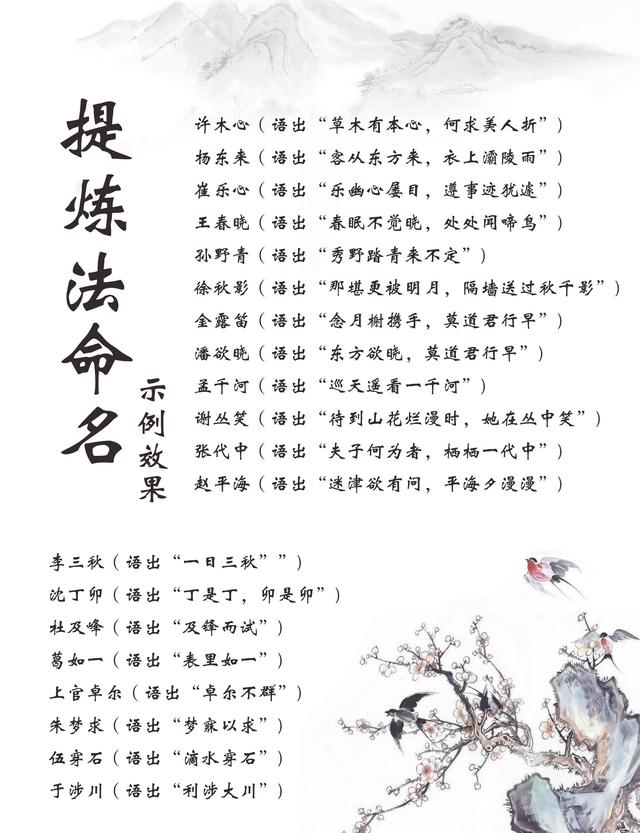 提炼法命名
示例效果
许木心（语出“草木有本心，何求美人折”）
杨东来（语出“客从东方来，衣上灞陵雨”）
崔乐心（语出“乐幽心屡目，遵事迹犹遽”）
王春晓（语出“春眠不觉晓，处处闻啼鸟”）
孙野青（语出“秀野踏青来不定”）
徐秋影（语出“那堪更被明月，隔墙送过秋千影”）
金露笛（语出“念月榭携手，莫道君行早”）
潘欲晓（语出“东方欲晓，莫道君行早”）
孟千河（语出“巡天遥看一千河”）
谢丛笑（语出“待到山花烂漫时，她在丛中笑”）
张代中（语出“夫子何为者，栖栖一代中”）
赵平海（语出“迷津欲有问，平海夕漫漫”）
李三秋（语出“一日三秋””）
沈丁卯（语出“丁是丁，卯是卯”）
杜及峰（语出“及锋而试”）
葛如一（语出“表里如一”）
上官卓尔（语出“卓尔不群”）
朱梦求（语出“梦寐以求”）
伍穿石（语出“滴水穿石”）
于涉川（语出“利涉大川”）